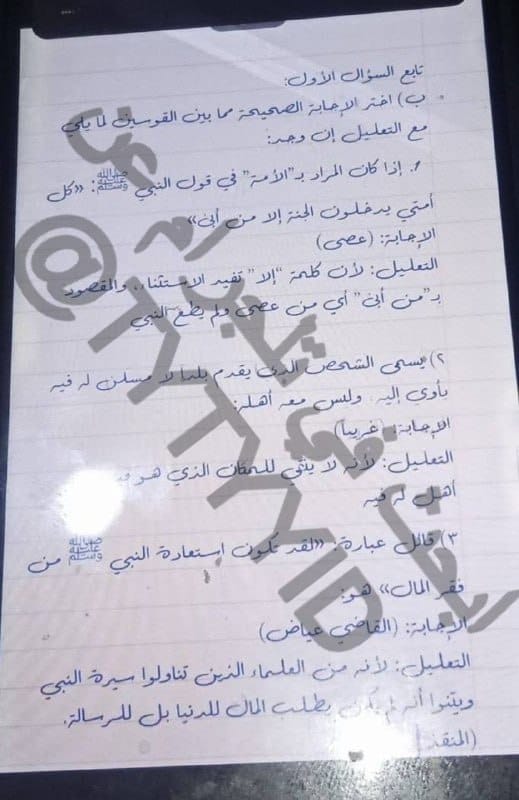 تابع السؤال الأول:
ب) اختر الإجابة الصحيحة مما بين القوسين لما يلي
مع التعليل إن وجد:
١. إذا كان المراد بـ"الأمة" في قول النبي ﷺ: «كل
أمتي يدخلون الجنة إلا من أبى»
الإجابة: (عصى)
التعليل: لأن كلمة "إلا" تفيد الاستثناء، والمقصود
بـ"من أبى" أي من عصى ولم يطع النبي
٢) يسمى الشخص الذي يقدم بلدا لا مسكن له فيه
يأوي إليه، وليس معه أهله:
الإجابة: (غريباً)
التعليل: لأنه لا ينتمي للمكان الذي هو
أهل له فيه
٣) قائل عبارة: «لقد تكون استعاذة النبي ﷺ من
فقر المال» هو:
الإجابة: (القاضي عياض)
التعليل: لأنه من العلماء الذين تناولوا سيرة النبي
وبينوا أنه لم يكن يطلب المال للدنيا بل للرسالة.
(المنقذ
ابحث في تلجرام عن
@TYTYYID